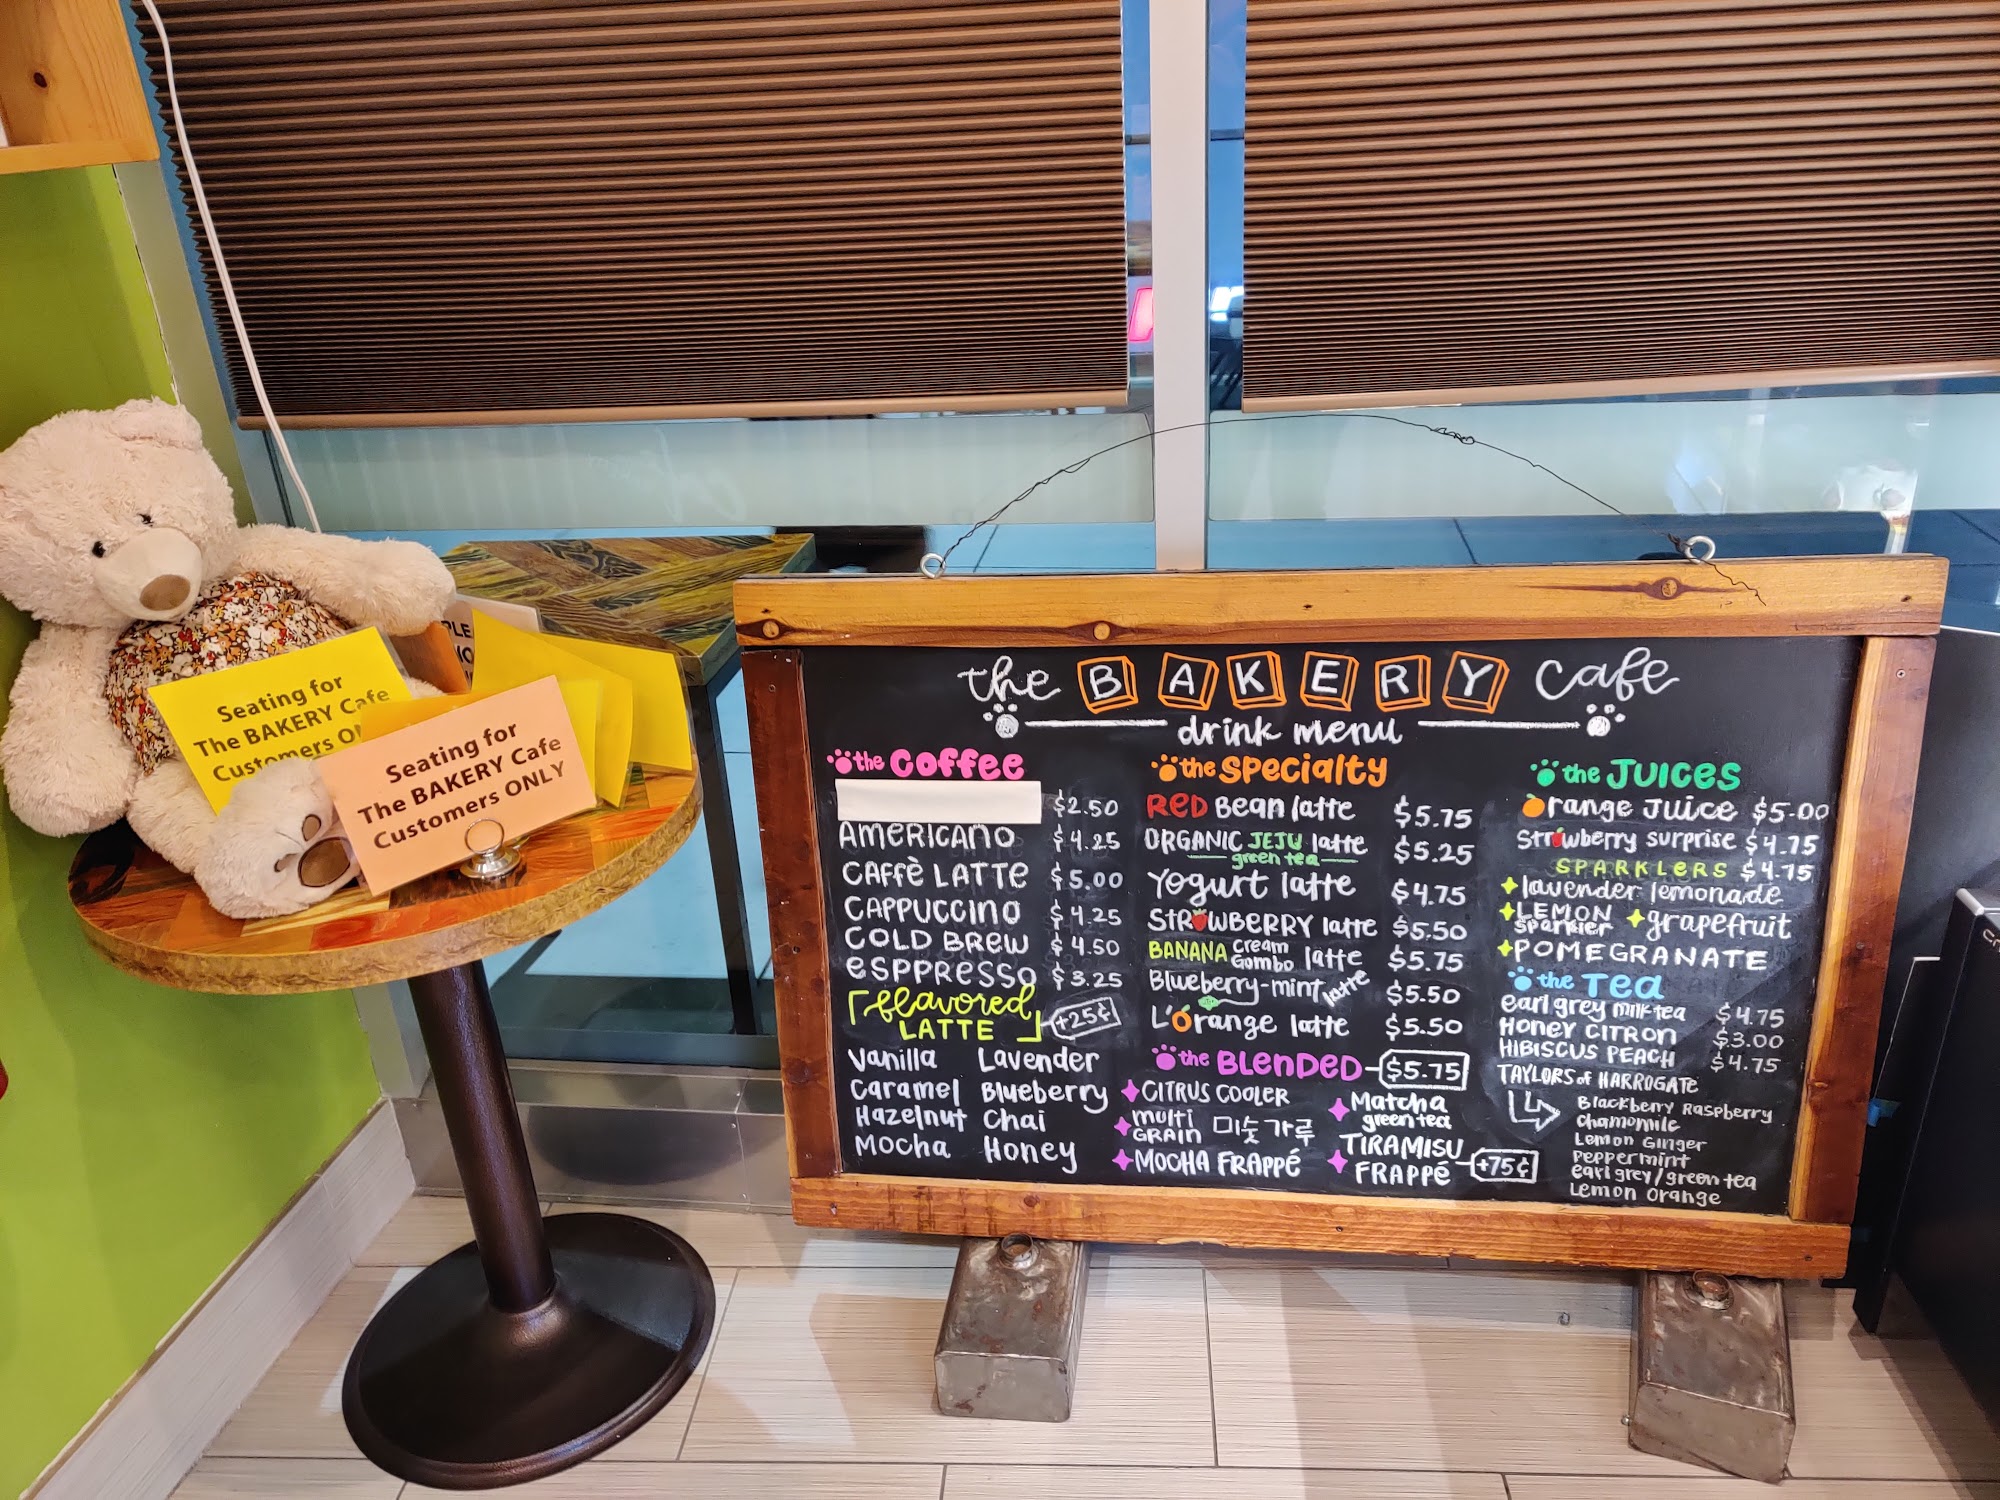 Seating for
The BAKERY Cafe
Customers
Seating for
The BAKERY Cafe
Customers ONLY
the BAKERY Cafe
drink menu
the Coffee
$2.50
AMERICANO $4.25
CAFFÈ LATTE $5.00
CAPPUCCINO $4.25
COLD BREW $4.50
eSPPRESSO $3.25
flavored
LATTE +25¢
Vanilla Lavender
Caramel Blueberry
Hazelnut Chai
Mocha Honey
the SPecialty
RED Bean latte $5.75
ORGANIC JEJU latte $5.25
green tea
Yogurt latte $4.75
STRAWBERRY latte $5.50
BANANA Cream Combo latte $5.75
Blueberry-mint latte $5.50
L'Orange latte $5.50
the BLenDeD $5.75
CITRUS COOLER
multi GRAIN 미숫가루
MOCHA FRAPPÉ
Matcha green tea
TIRAMISU FRAPPÉ +75¢
the JUICES
Orange Juice $5.00
Strawberry surprise $4.75
SPARKLERS $4.75
lavender lemonade
LEMON sparkler grapefruit
POMEGRANATE
the Tea
earl grey milk tea $4.75
HONEY CITRON $3.00
HIBISCUS PEACH $4.75
TAYLORS of HARROGATE
Blackberry Raspberry
chamomile
Lemon Ginger
Peppermint
earl grey/green tea
Lemon Orange